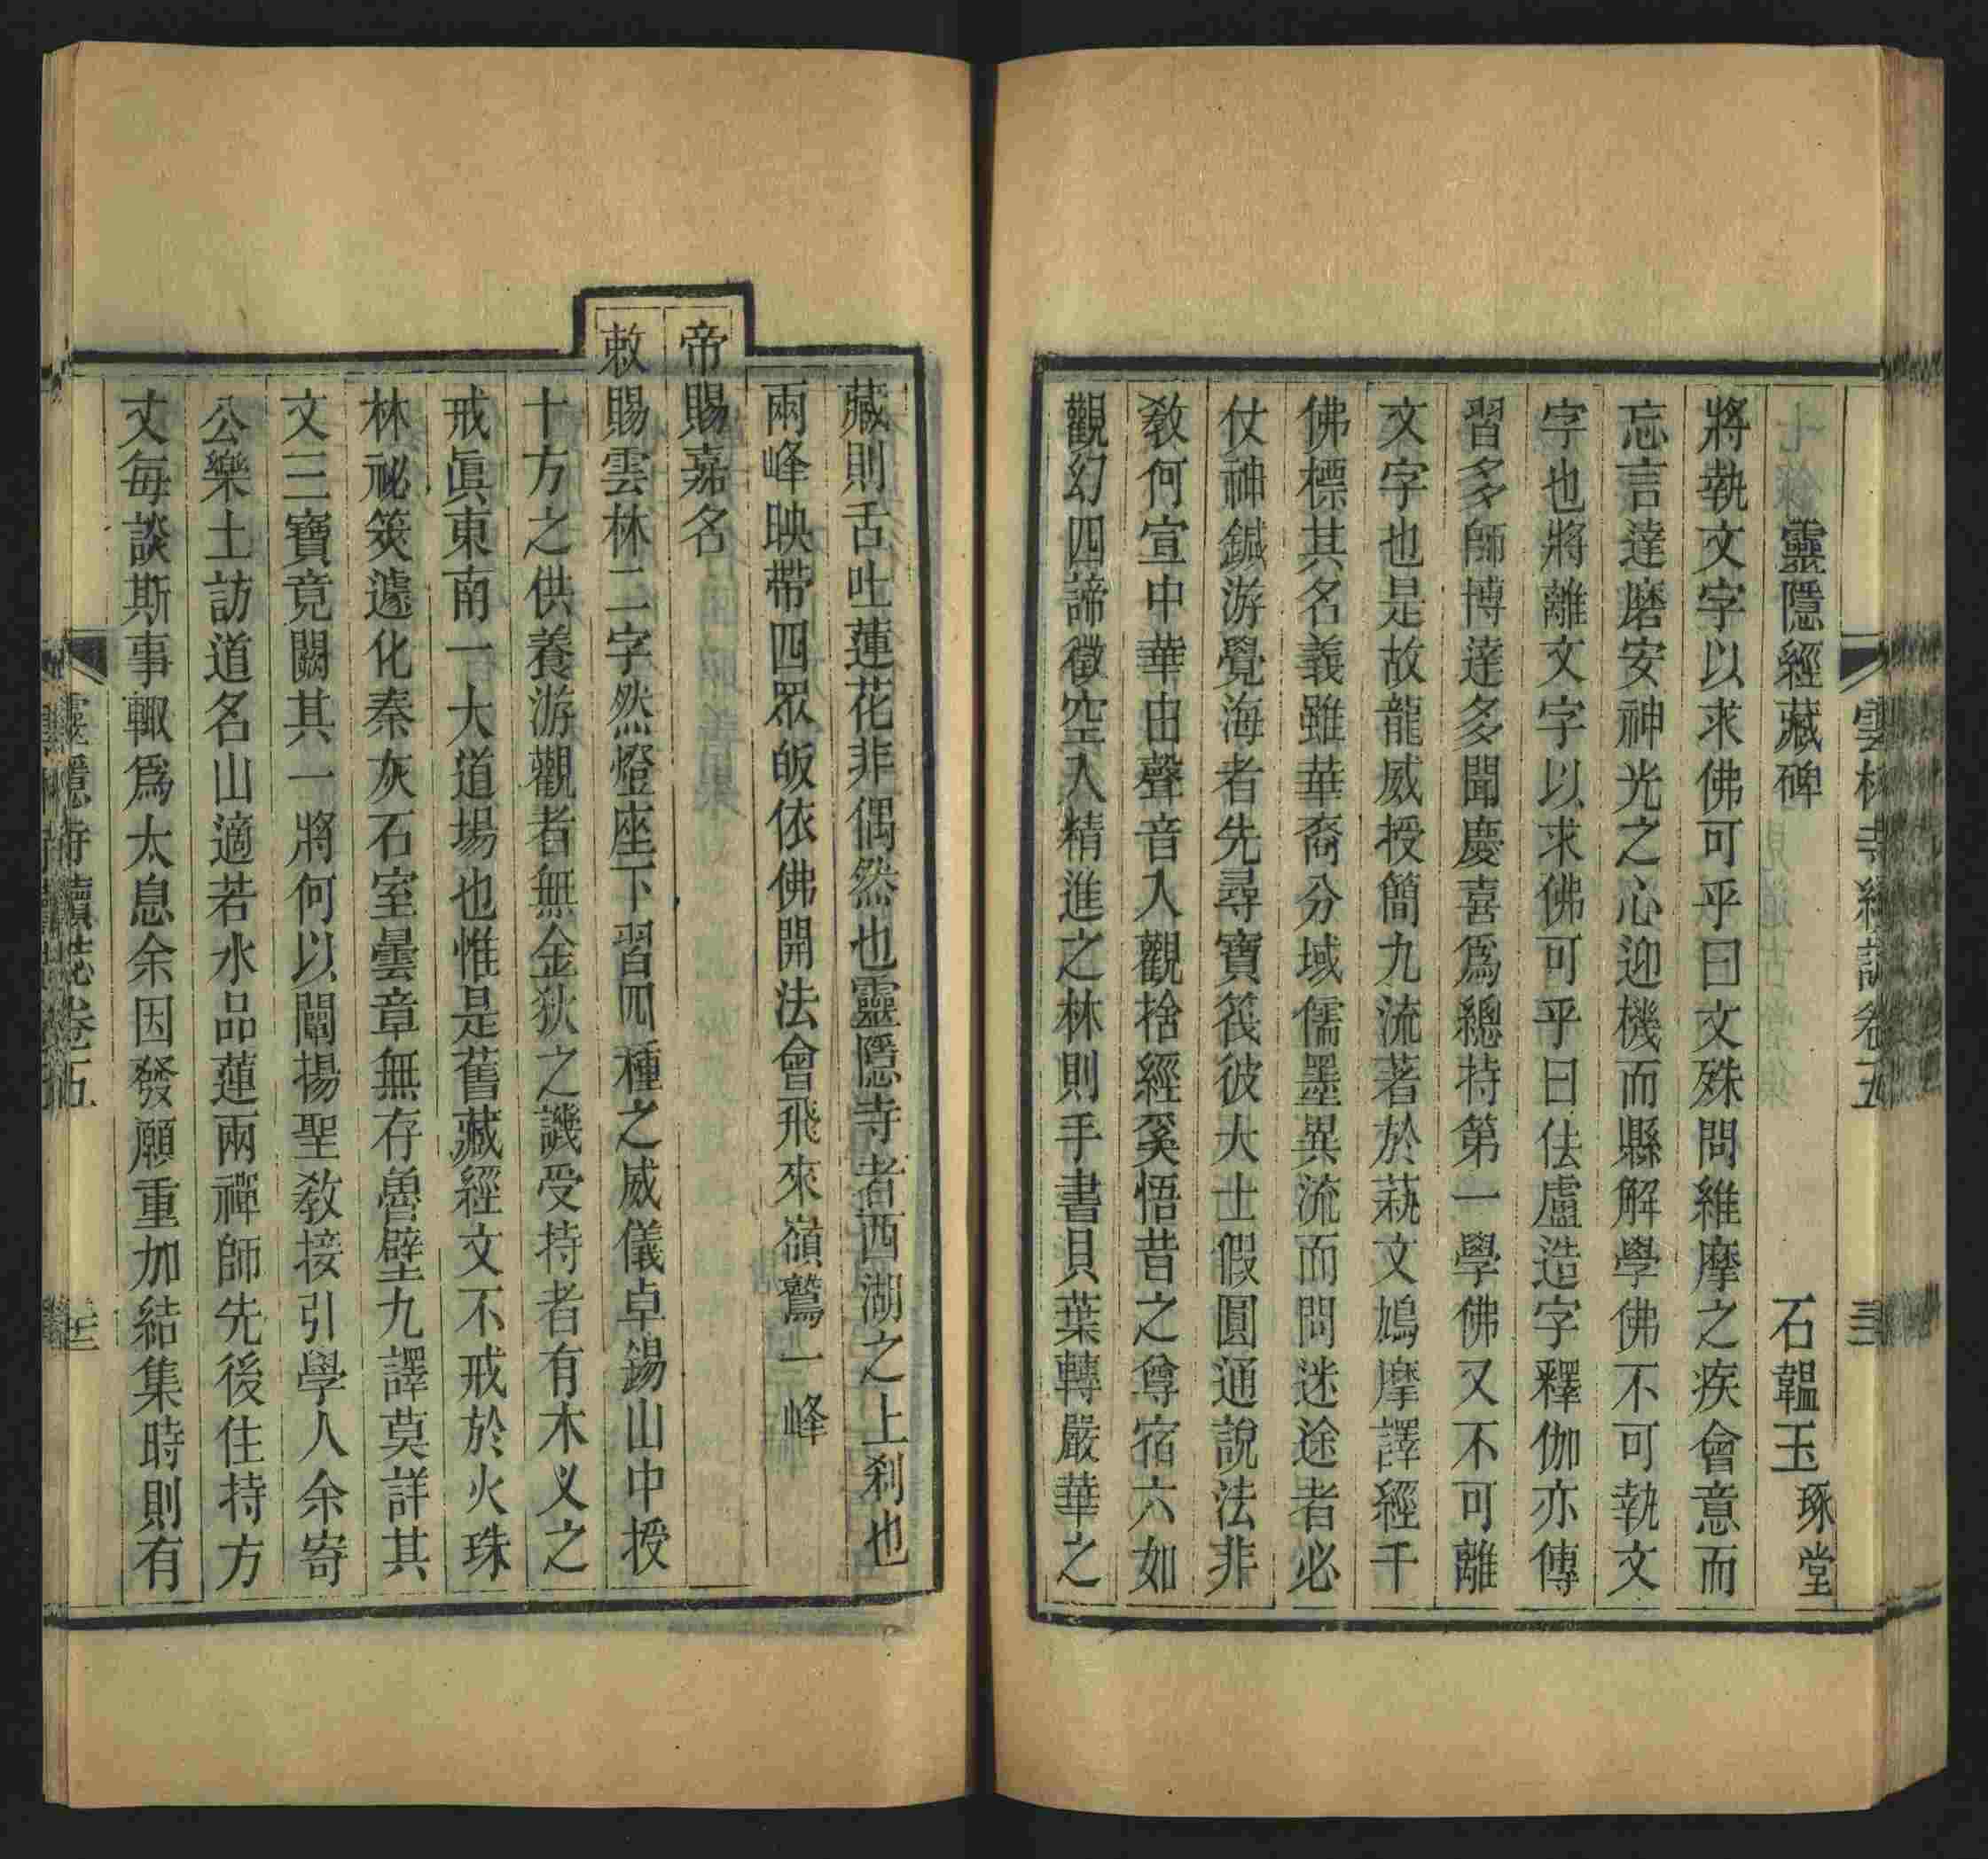 靈隱經藏碑 石韞玉琢堂
將執文字以求佛可乎曰文殊問維摩之疾會意而
忘言達磨安神光之心迎機而縣解學佛不可執文
字也將離文字以求佛可乎曰佉盧造字釋伽亦傳
習多師博達多聞慶喜爲總持第一學佛又不可離
文字也是故龍威授簡九流著於蓺文鳩摩譯經千
佛標其名義雖華裔分域儒墨異流而問迷途者必
仗神鍼游覺海者先尋寶筏彼大士假圓通說法非
敎何宣中華由聲音入觀捨經奚悟昔之尊宿六如
觀幻四諦徵空入精進之林則手書貝葉轉嚴華之
藏則舌吐蓮花非偶然也靈隱寺者西湖之上刹也
兩峰映帶四眾皈依佛開法會飛來嶺鷲一峰
帝賜嘉名
敕賜雲林二字然燈座下習四種之威儀卓錫山中授
十方之供養游觀者無金狄之譏受持者有木义之
戒眞東南一大道場也惟是舊藏經文不戒於火珠
林祕筴遽化秦灰石室曇章無存魯壁九譯莫詳其
文三寶竟闕其一將何以闡揚聖敎接引學人余寄
公樂土訪道名山適若水品蓮兩禪師先後住持方
丈每談斯事輒爲太息余因發願重加結集時則有